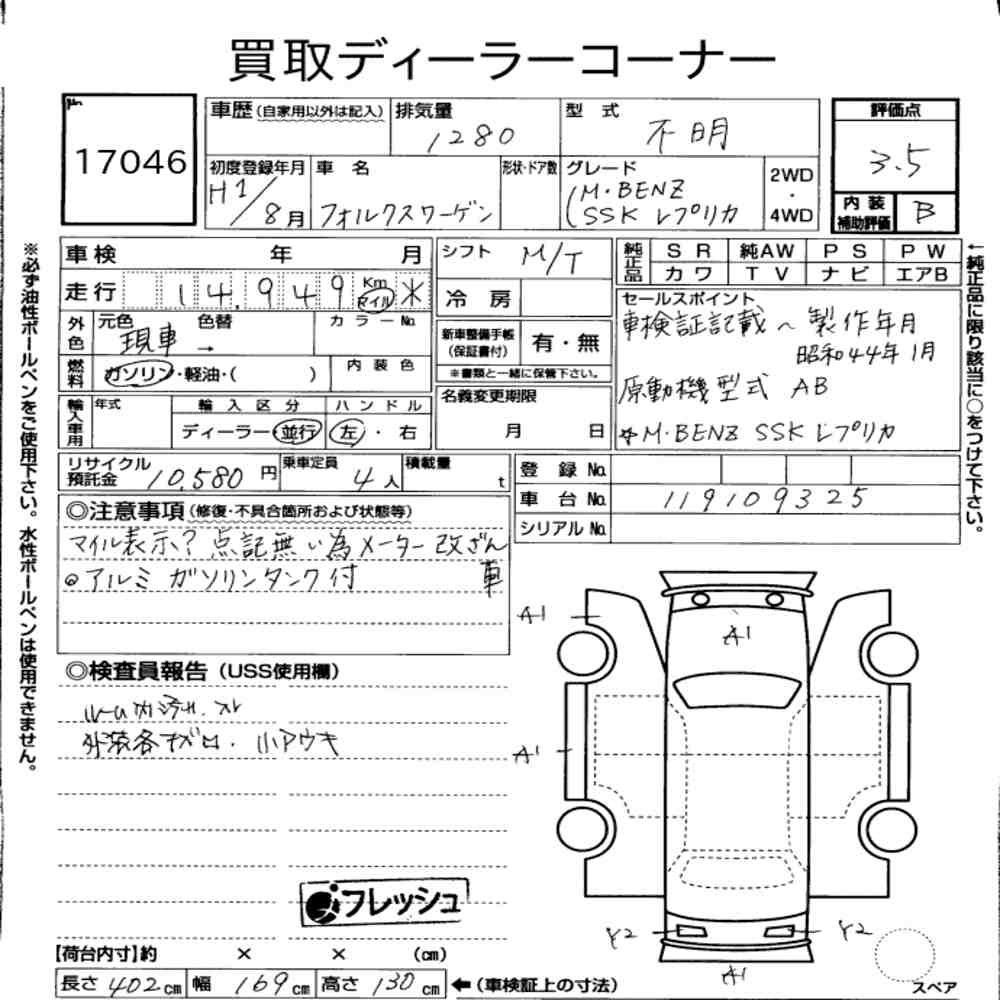 買取ディーラーコーナー
17046
車歴(自家用以外は記入)
排気量
1280
型式
不明
評価点
3.5
初度登録年月
H1/8月
車名
フォルクスワーゲン
形状・ドア数
グレード
(M・BENZ
SSK レプリカ
2WD
・
4WD
内装
補助評価
B
車検 年 月
走行 14,949 Km マイル ※
外色
元色 色替 カラーNo.
現車 →
燃料
ガソリン・軽油・( )
内装色
輸入車用
年式
輸入区分
ディーラー・並行
ハンドル
左・右
シフト
M/T
冷房
新車整備手帳
(保証書付)
有・無
※書類と一緒に保管下さい。
名義変更期限
月 日
純正品
SR 純AW PS PW
カワ TV ナビ エアB
セールスポイント
車検証記載〜製作年月
昭和44年1月
原動機型式 AB
☆M・BENZ SSK レプリカ
リサイクル
預託金
10,580円
乗車定員
4人
積載量
t
登録No.
車台No. 119109325
シリアルNo.
◎注意事項(修復・不具合箇所および状態等)
マイル表示?点記無い為メーター改ざん
車
◎アルミ ガソリンタンク付
◎検査員報告(USS使用欄)
外装各 ・小アウキ
フレッシュ
【荷台内寸】約 × × (cm)
長さ402cm 幅169cm 高さ130cm ←(車検証上の寸法)
※必ず油性ボールペンをご使用下さい。水性ボールペンは使用できません。
←純正品に限り該当に○をつけて下さい。
A1
A1
A1
Y2
Y2
A1
スペア